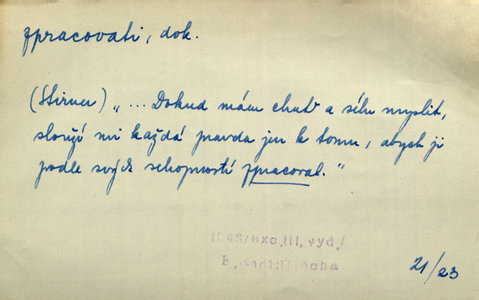 zpracovati, dok.
(Stirner) „ ... Dokud mám chuť a sílu myslit,
slouží mi každá pravda jen k tomu, abych ji
podle svých schopností zpracoval."
1946/exc.III.vyd./
21/23